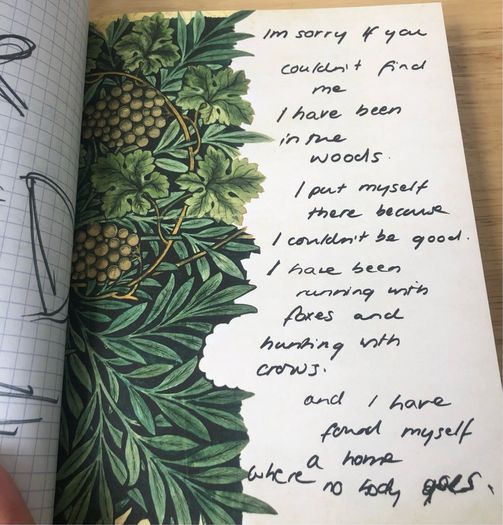 Im sorry if you
couldn't find
me
I have been
in the
woods.
I put myself
there because
I couldn't be good.
I have been
running with
foxes and
hunting with
crows.
and I have
found myself
a home
where no body goes.